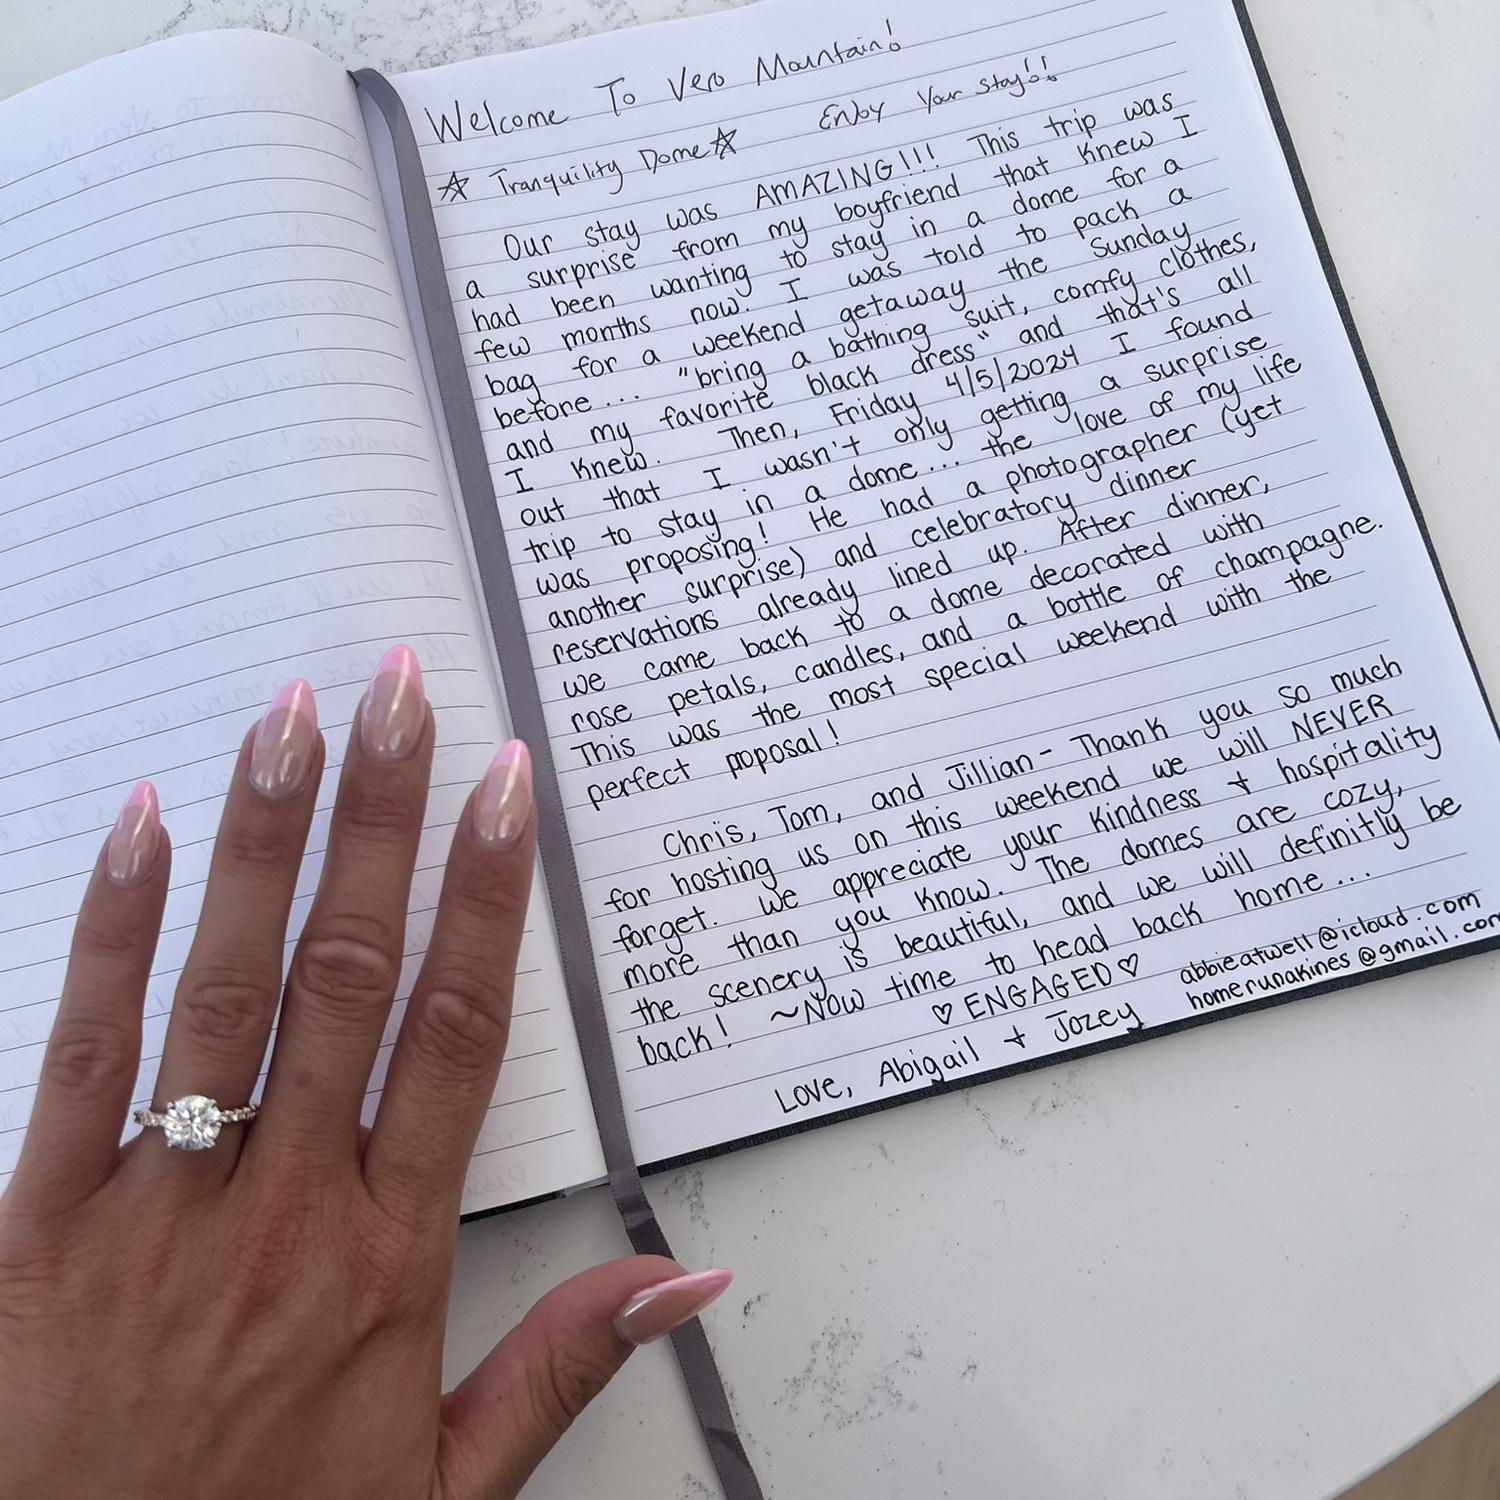 Welcome To Vero Mountain!
Enjoy Your Stay!!
☆ Tranquility Dome ☆
Our stay was AMAZING!!! This trip was
a surprise from my boyfriend that knew I
had been wanting to stay in a dome for a
few months now. I was told to pack a
bag for a weekend getaway the Sunday
before... "bring a bathing suit, comfy clothes,
and my favorite black dress" and that's all
I knew. Then, Friday 4/5/2024 I found
out that I wasn't only getting a surprise
trip to stay in a dome... the love of my life
was proposing! He had a photographer (yet
another surprise) and celebratory dinner
reservations already lined up. After dinner,
we came back to a dome decorated with
rose petals, candles, and a bottle of champagne.
This was the most special weekend with the
perfect poposal!
Chris, Tom, and Jillian - Thank you so much
for hosting us on this weekend we will NEVER
forget. We appreciate your kindness + hospitality
more than you know. The domes are cozy,
the scenery is beautiful, and we will definitly be
back! ~Now time to head back home...
♡ ENGAGED ♡
Love, Abigail + Jozey
abbieatwell@icloud.com
homerunakines@gmail.com